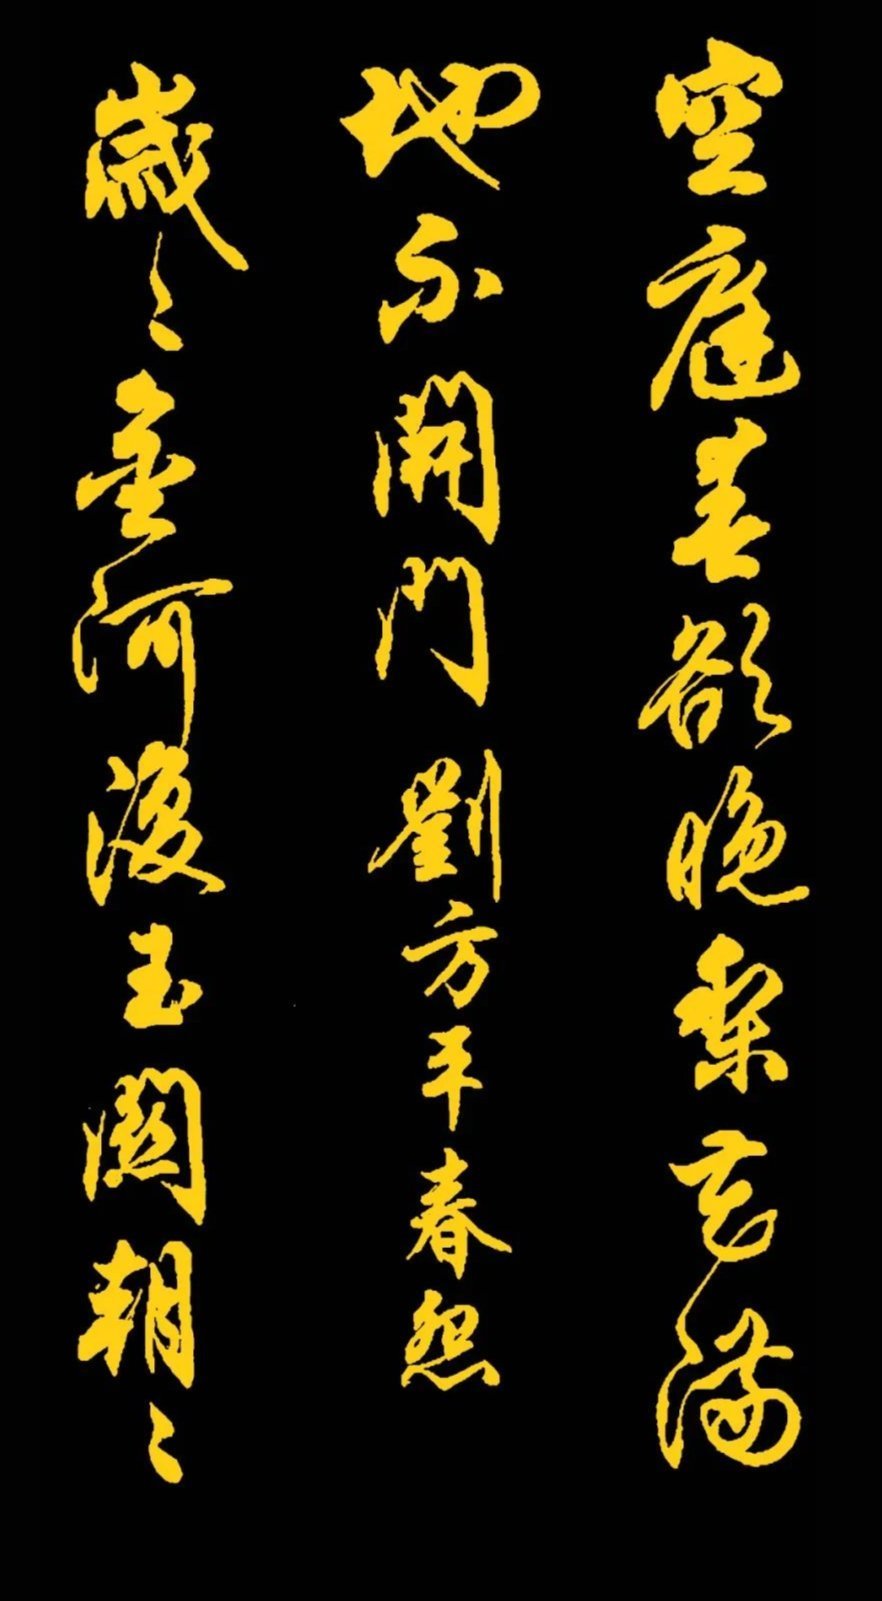 空庭春欲晚梨花滿
地不開門 劉方平春怨
歲々金河復玉關朝々